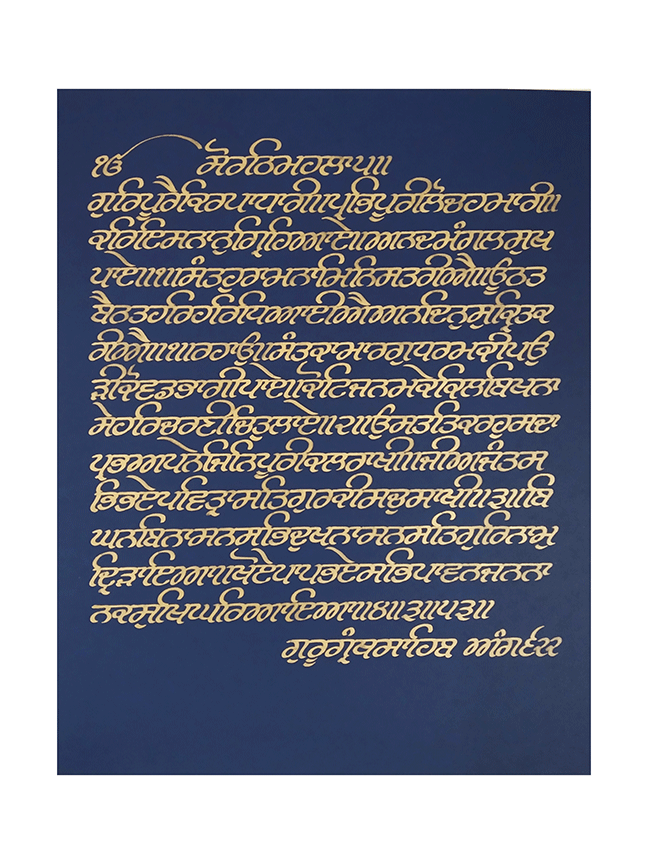 ੴ ਸੋਰਠਿਮਹਲਾ੫॥
ਗੁਰਿਪੂਰੈਕਿਰਪਾਧਾਰੀ॥ਪ੍ਰਭਿਪੂਰੀਲੋਚਹਮਾਰੀ॥
ਕਰਿਇਸਨਾਨੁਗ੍ਰਿਹਿਆਏ॥ਅਨਦਮੰਗਲਸੁਖ
ਪਾਏ॥੧॥ਸੰਤਹੁਰਾਮਨਾਮਿਨਿਸਤਰੀਐ॥ਊਠਤ
ਬੈਠਤਹਰਿਹਰਿਧਿਆਈਐਅਨਦਿਨੁਸੁਕ੍ਰਿਤੁਕ
ਰੀਐ॥੧॥ਰਹਾਉ॥ਸੰਤਕਾਮਾਰਗੁਧਰਮਕੀਪਉ
ੜੀਕੋਵਡਭਾਗੀਪਾਏ॥ਕੋਟਿਜਨਮਕੇਕਿਲਬਿਖਨਾ
ਸੇਹਰਿਚਰਣੀਚਿਤੁਲਾਏ॥੨॥ਉਸਤਤਿਕਰਹੁਸਦਾ
ਪ੍ਰਭਅਪਨੇਜਿਨਿਪੂਰੀਕਲਰਾਖੀ॥ਜੀਅਜੰਤਸ
ਭਿਭਏਪਵਿਤ੍ਰਾਸਤਿਗੁਰਕੀਸਚੁਸਾਖੀ॥੩॥ਬਿ
ਘਨਬਿਨਾਸਨਸਭਿਦੁਖਨਾਸਨਸਤਿਗੁਰਿਨਾਮੁ
ਦ੍ਰਿੜਾਇਆ॥ਖੋਏਪਾਪਭਏਸਭਿਪਾਵਨਜਨਨਾ
ਨਕਸੁਖਿਘਰਿਆਇਆ॥੪॥੩॥੫੩॥
ਗੁਰੂਗ੍ਰੰਥਸਾਹਿਬ ਅੰਗ੬੨੨